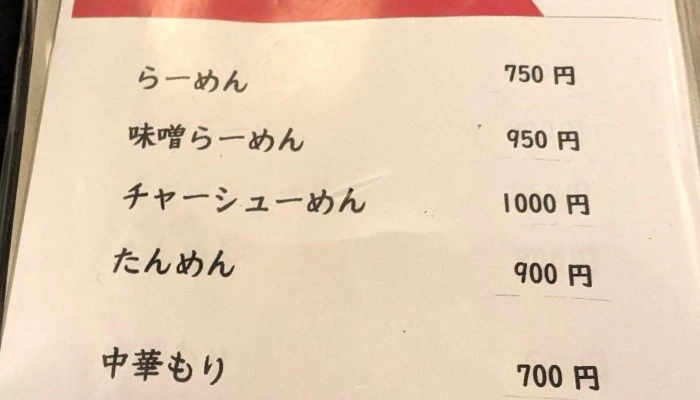 らーめん 750 円
味噌らーめん 950 円
チャーシューめん 1000 円
たんめん 900 円
中華もり 700 円